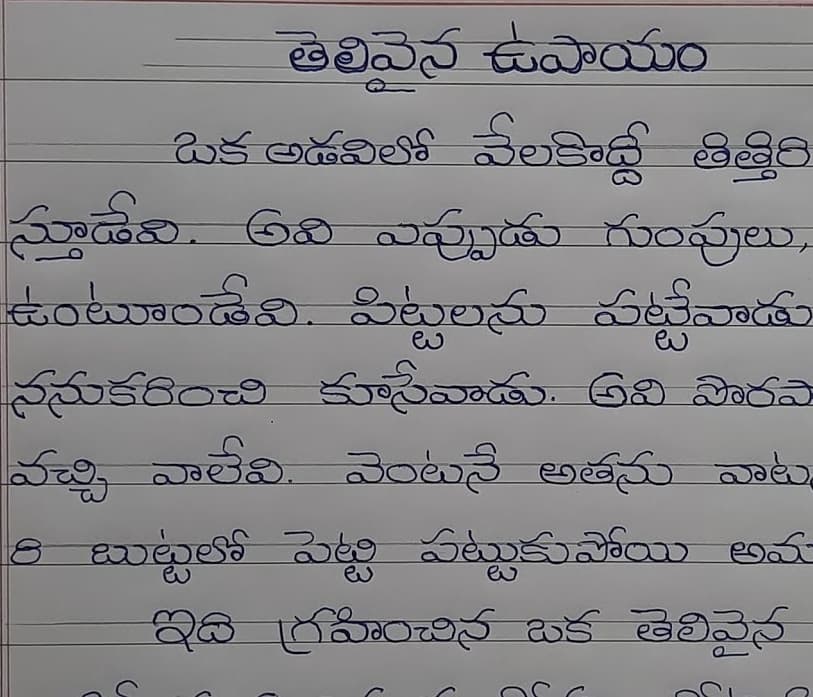 తెలివైన ఉపాయం
ఒక అడవిలో వేలకొద్దీ తిత్తిరి
స్తూడేవి. అవి ఎప్పుడు గుంపులు,
ఉంటూండేవి. పిట్టలను పట్టేవాడు
ననుకరించి కూసేవాడు. అవి పొరపా
వచ్చి వాలేవి. వెంటనే అతను వాట
రి బుట్టలో పెట్టి పట్టుకుపోయి అమ
ఇది గ్రహించిన ఒక తెలివైన